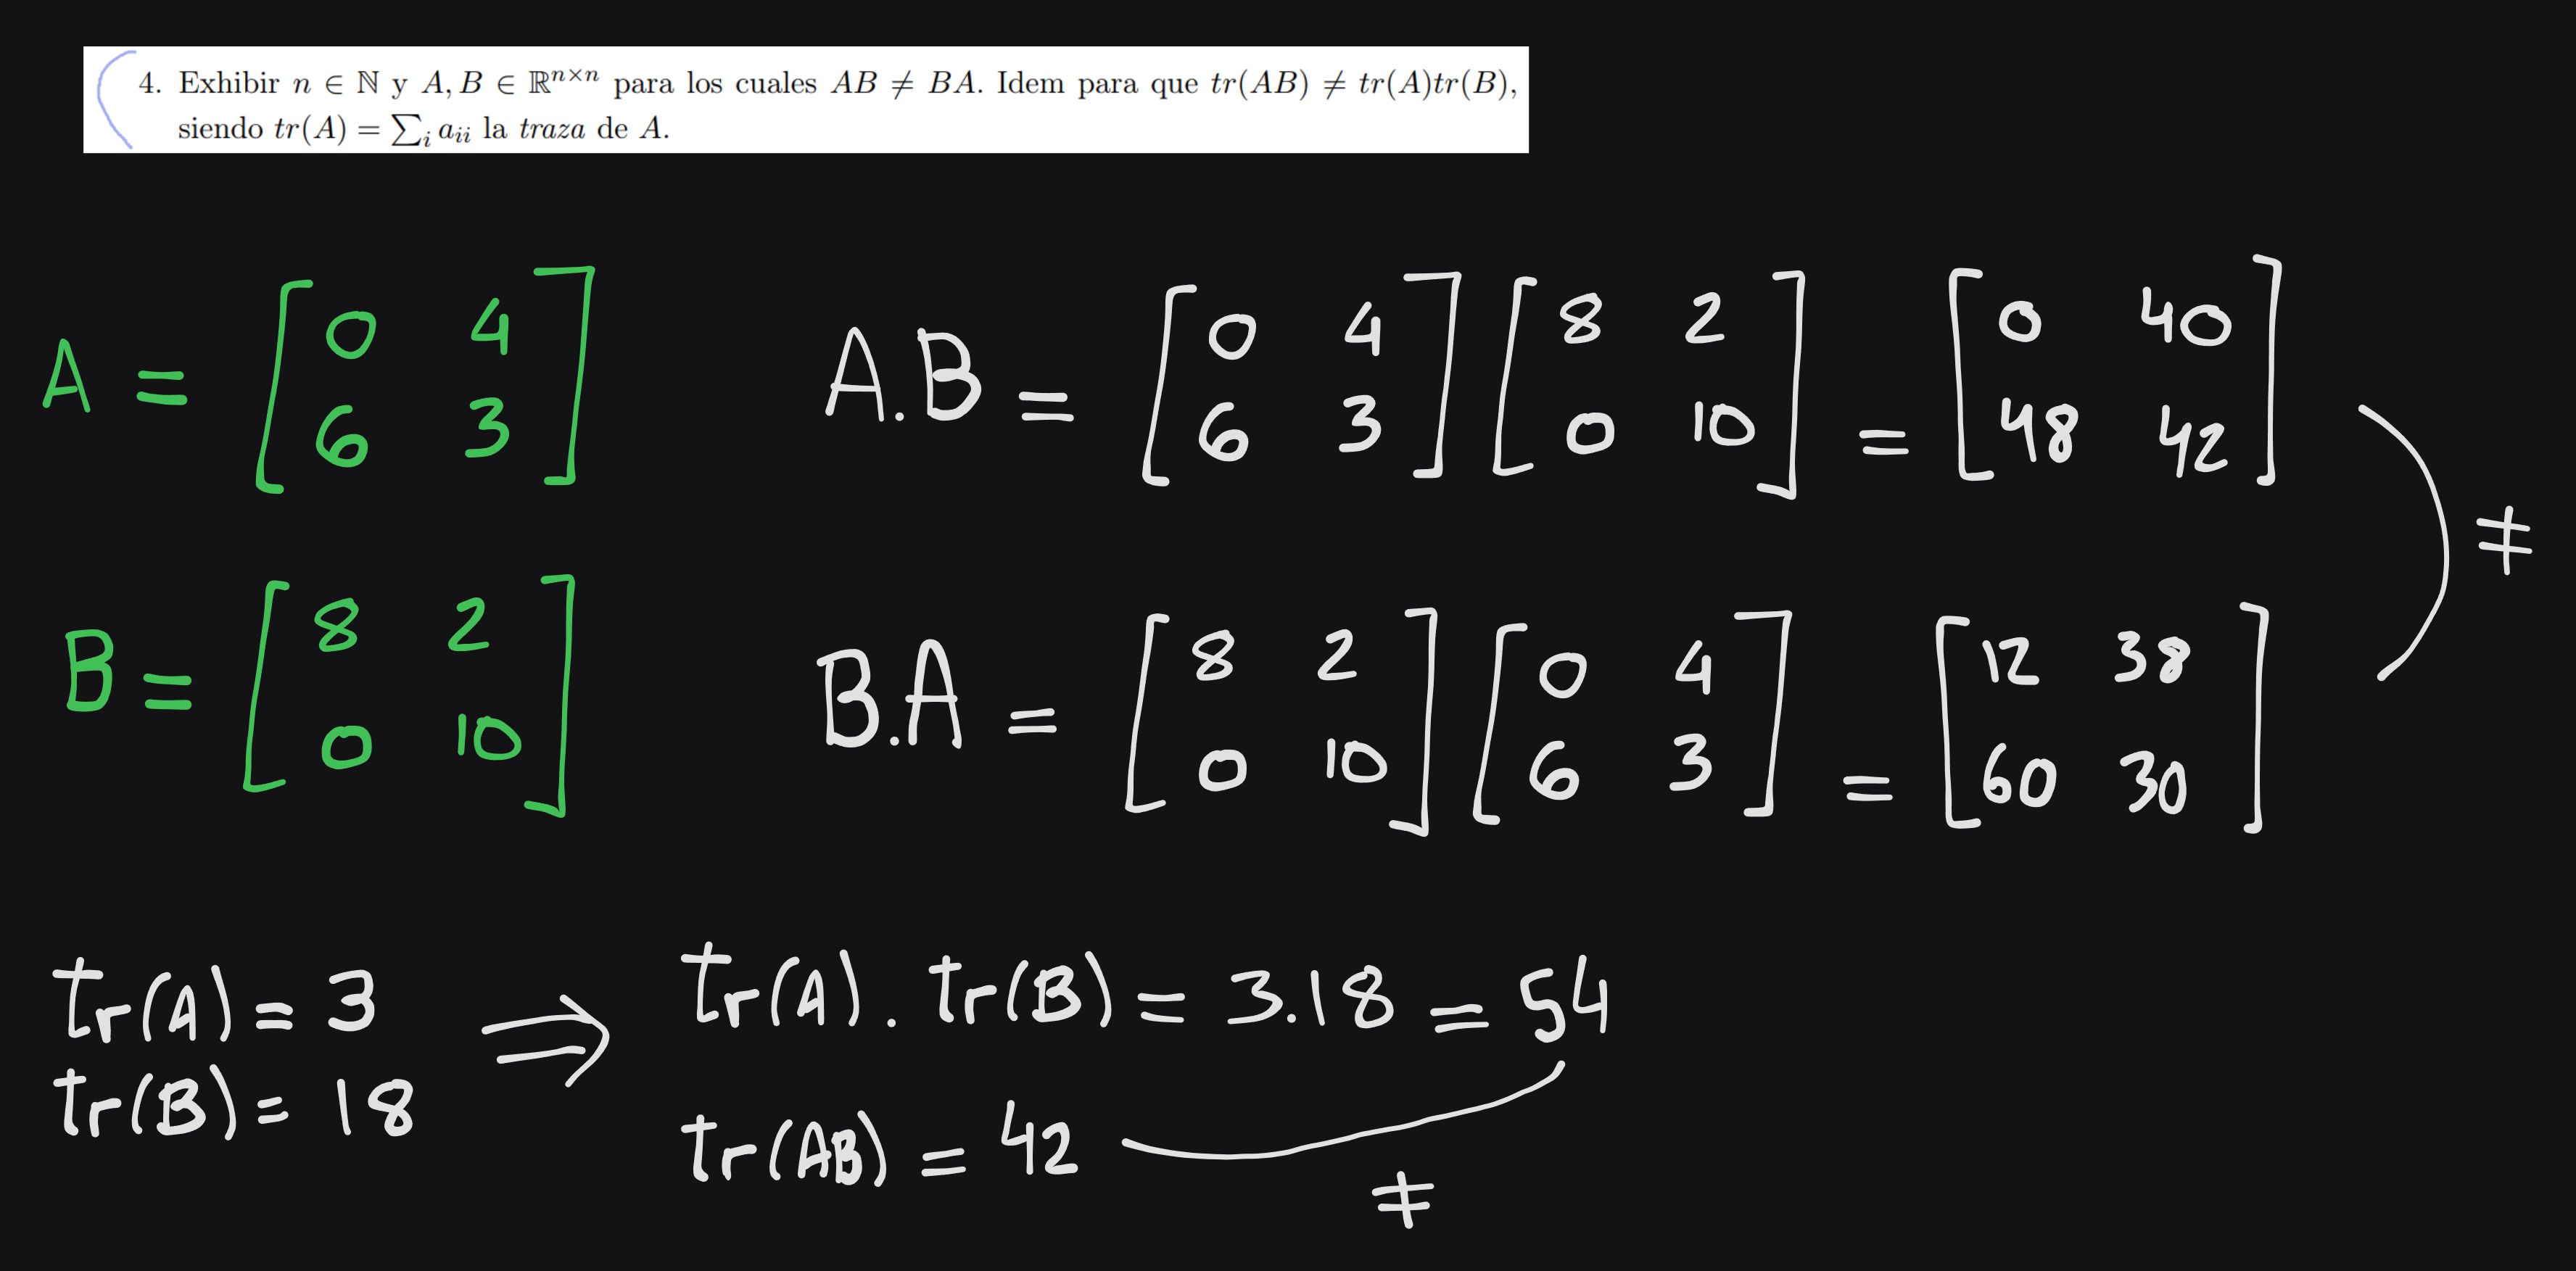 4. Exhibir n ∈ ℕ y A, B ∈ ℝⁿˣⁿ para los cuales AB ≠ BA. Idem para que tr(AB) ≠ tr(A)tr(B),
siendo tr(A) = ∑ᵢ aᵢᵢ la traza de A.
A = [0 4; 6 3]
A.B = [0 4; 6 3] [8 2; 0 10] = [0 40; 48 42]
≠
B = [8 2; 0 10]
B.A = [8 2; 0 10] [0 4; 6 3] = [12 38; 60 30]
tr(A) = 3
tr(B) = 18
⇒
tr(A) . tr(B) = 3.18 = 54
tr(AB) = 42
≠